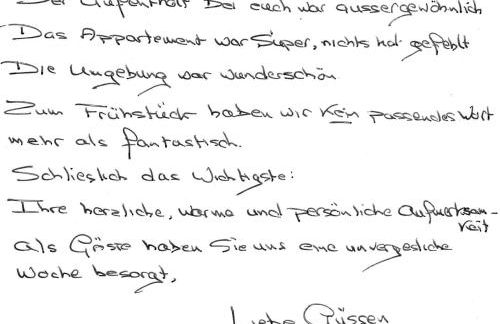 Der Aufenthalt bei euch war aussergewöhnlich
Das Appartement war Super, nichts hat gefehlt
Die Umgebung war wunderschön
Zum Frühstück haben wir kein passendes Wort
mehr als fantastisch.
Schlieslich das Wichtigste:
Ihre herzliche, warme und persönliche Aufmerksam-
keit
als Gäste haben Sie uns eine unvergesliche
Woche besorgt,
Liebe Grüssen